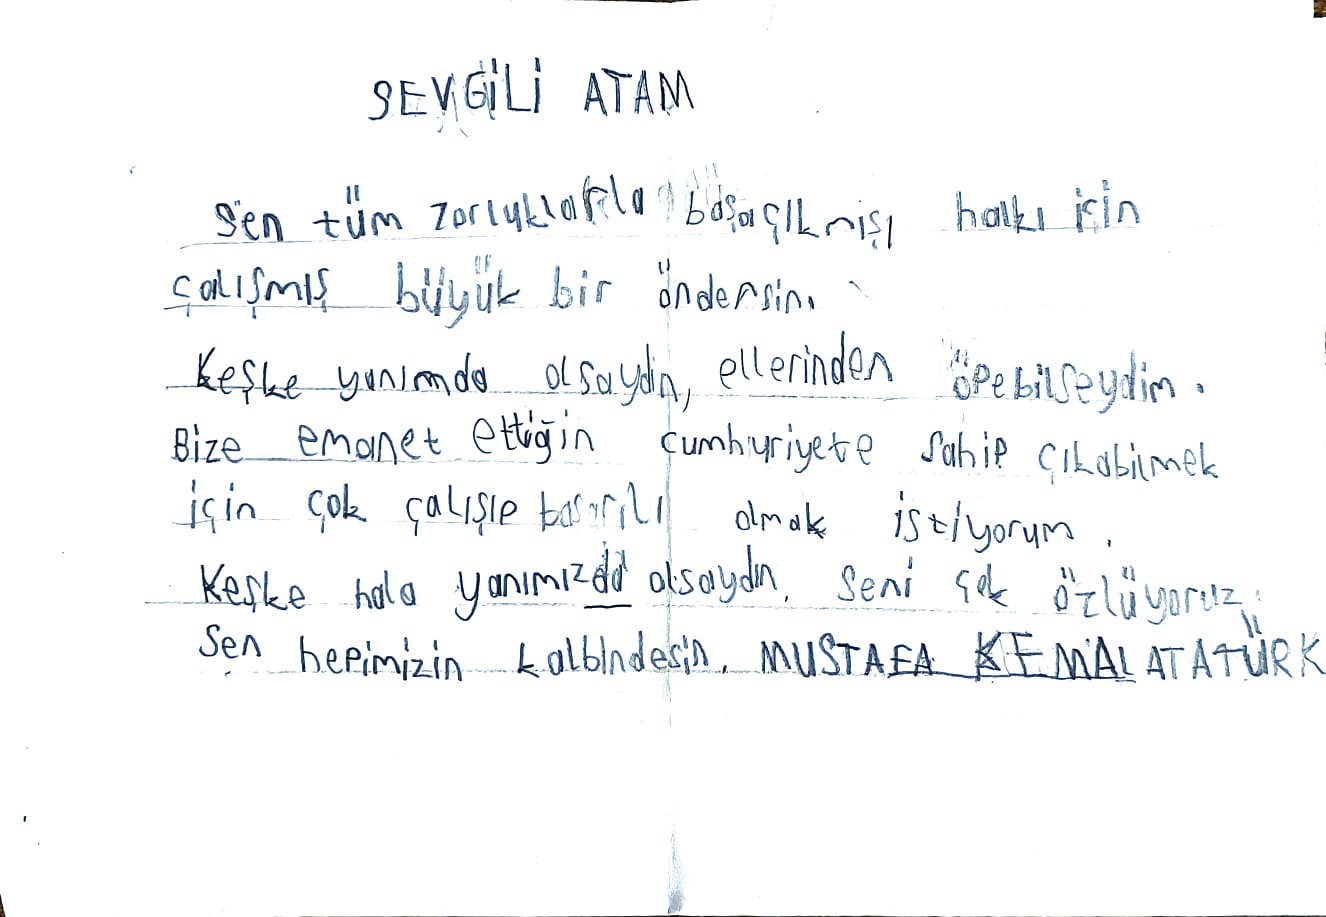 SEVGİLİ ATAM
Sen tüm zorluklarla başaçıkmışı halkı için
çalışmış büyük bir öndersin.
Keşke yanımda olsaydin, ellerinden öpebilseydim.
Bize emanet ettiğin cumhuriyete sahip çıkabilmek
için çok çalışıp başarılı olmak istiyorum.
Keşke hala yanımızda olsaydın, seni çok özlüyoruz.
Sen hepimizin kalbindesin. MUSTAFA KEMAL ATATÜRK